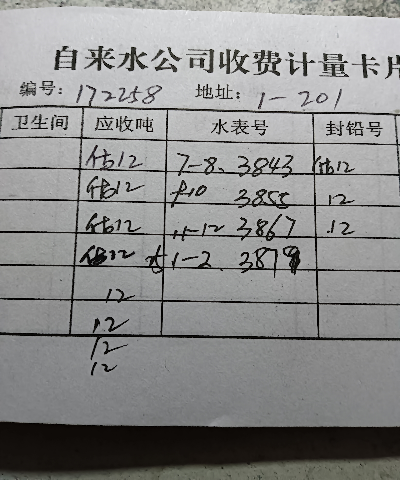 自来水公司收费计量卡片
编号: 172258 地址: 1-201
卫生间 应收吨 水表号 封铅号
估12 7-8. 3843 估12
估12 9-10 3855 12
估12 11-12 3867 12
估12 1-2. 3879
12
12
12
12